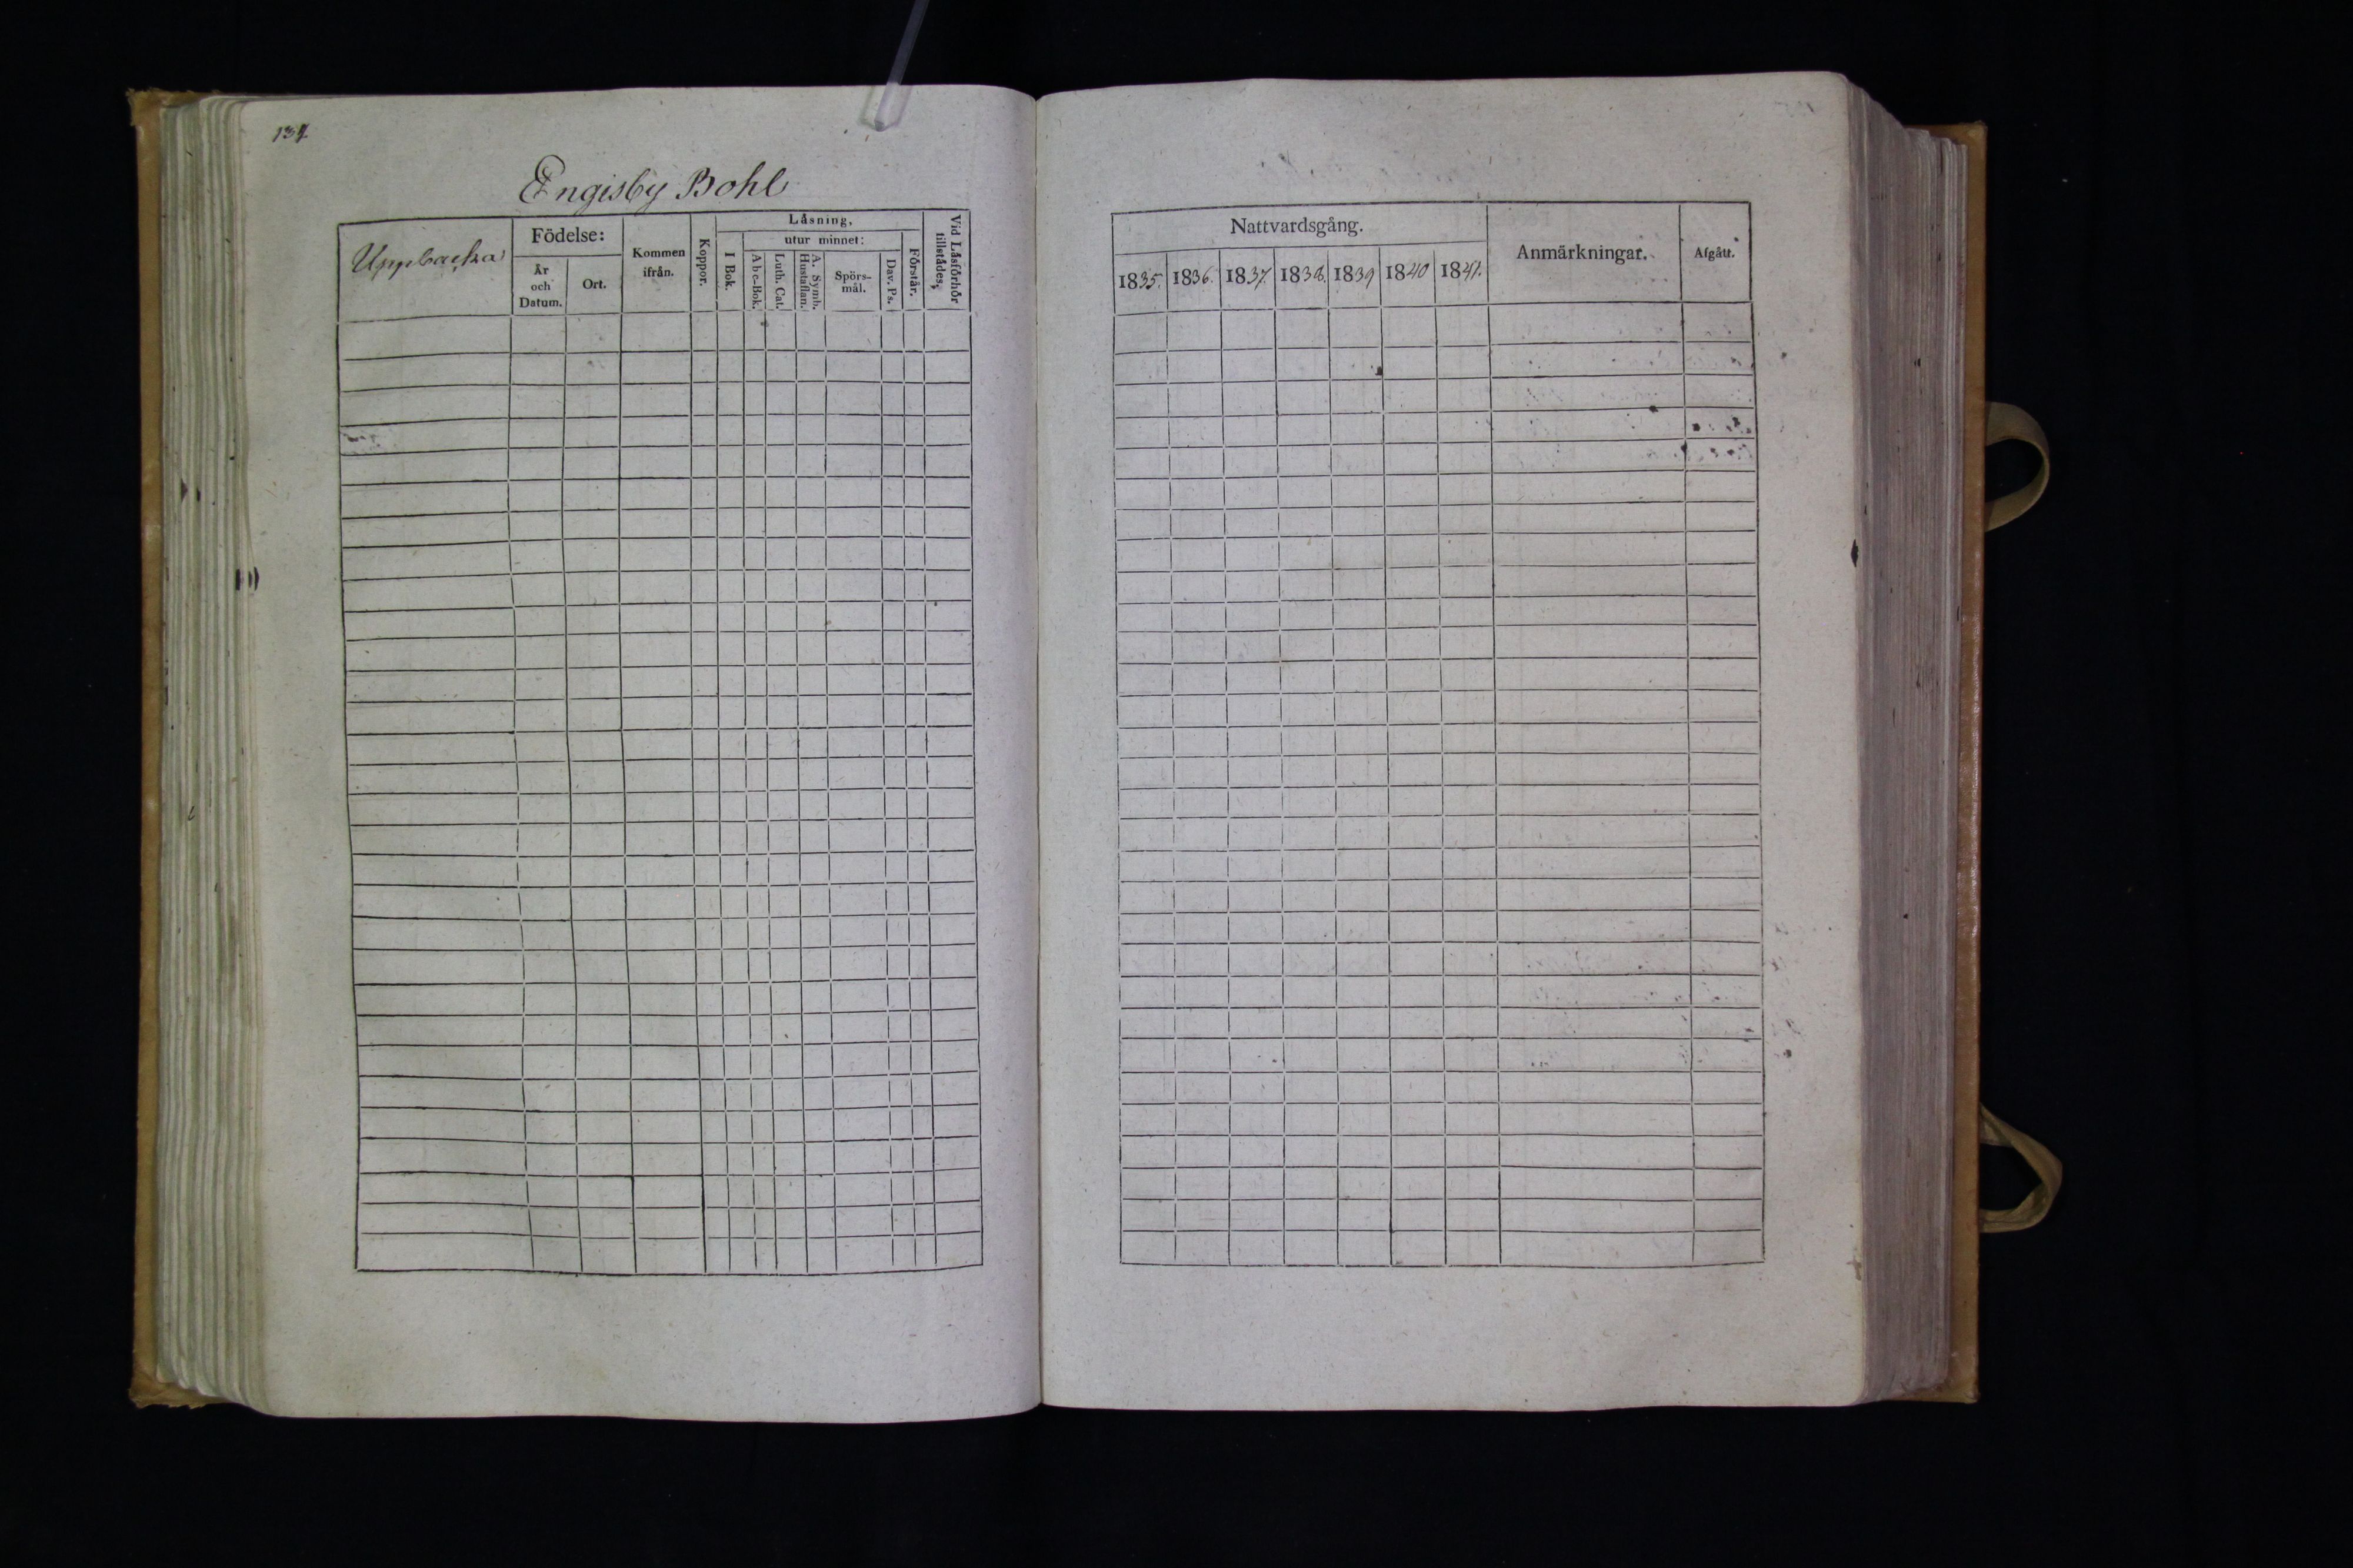 134.
Engisby Bohl
Uppbacka
Födelse:
År och Datum.
Ort.
Kommen ifrån.
Koppor.
Läsning,
I Bok.
utur minnet:
Abc-Bok.
Luth. Cat.
A. Symb. Hustaflan.
Spörs-mål.
Dav. Ps.
Förstår.
Vid Läsförhör tillstädes,
Nattvardsgång.
1835. 1836. 1837. 1838. 1839 1840 1841.
Anmärkningar.
Afgått.